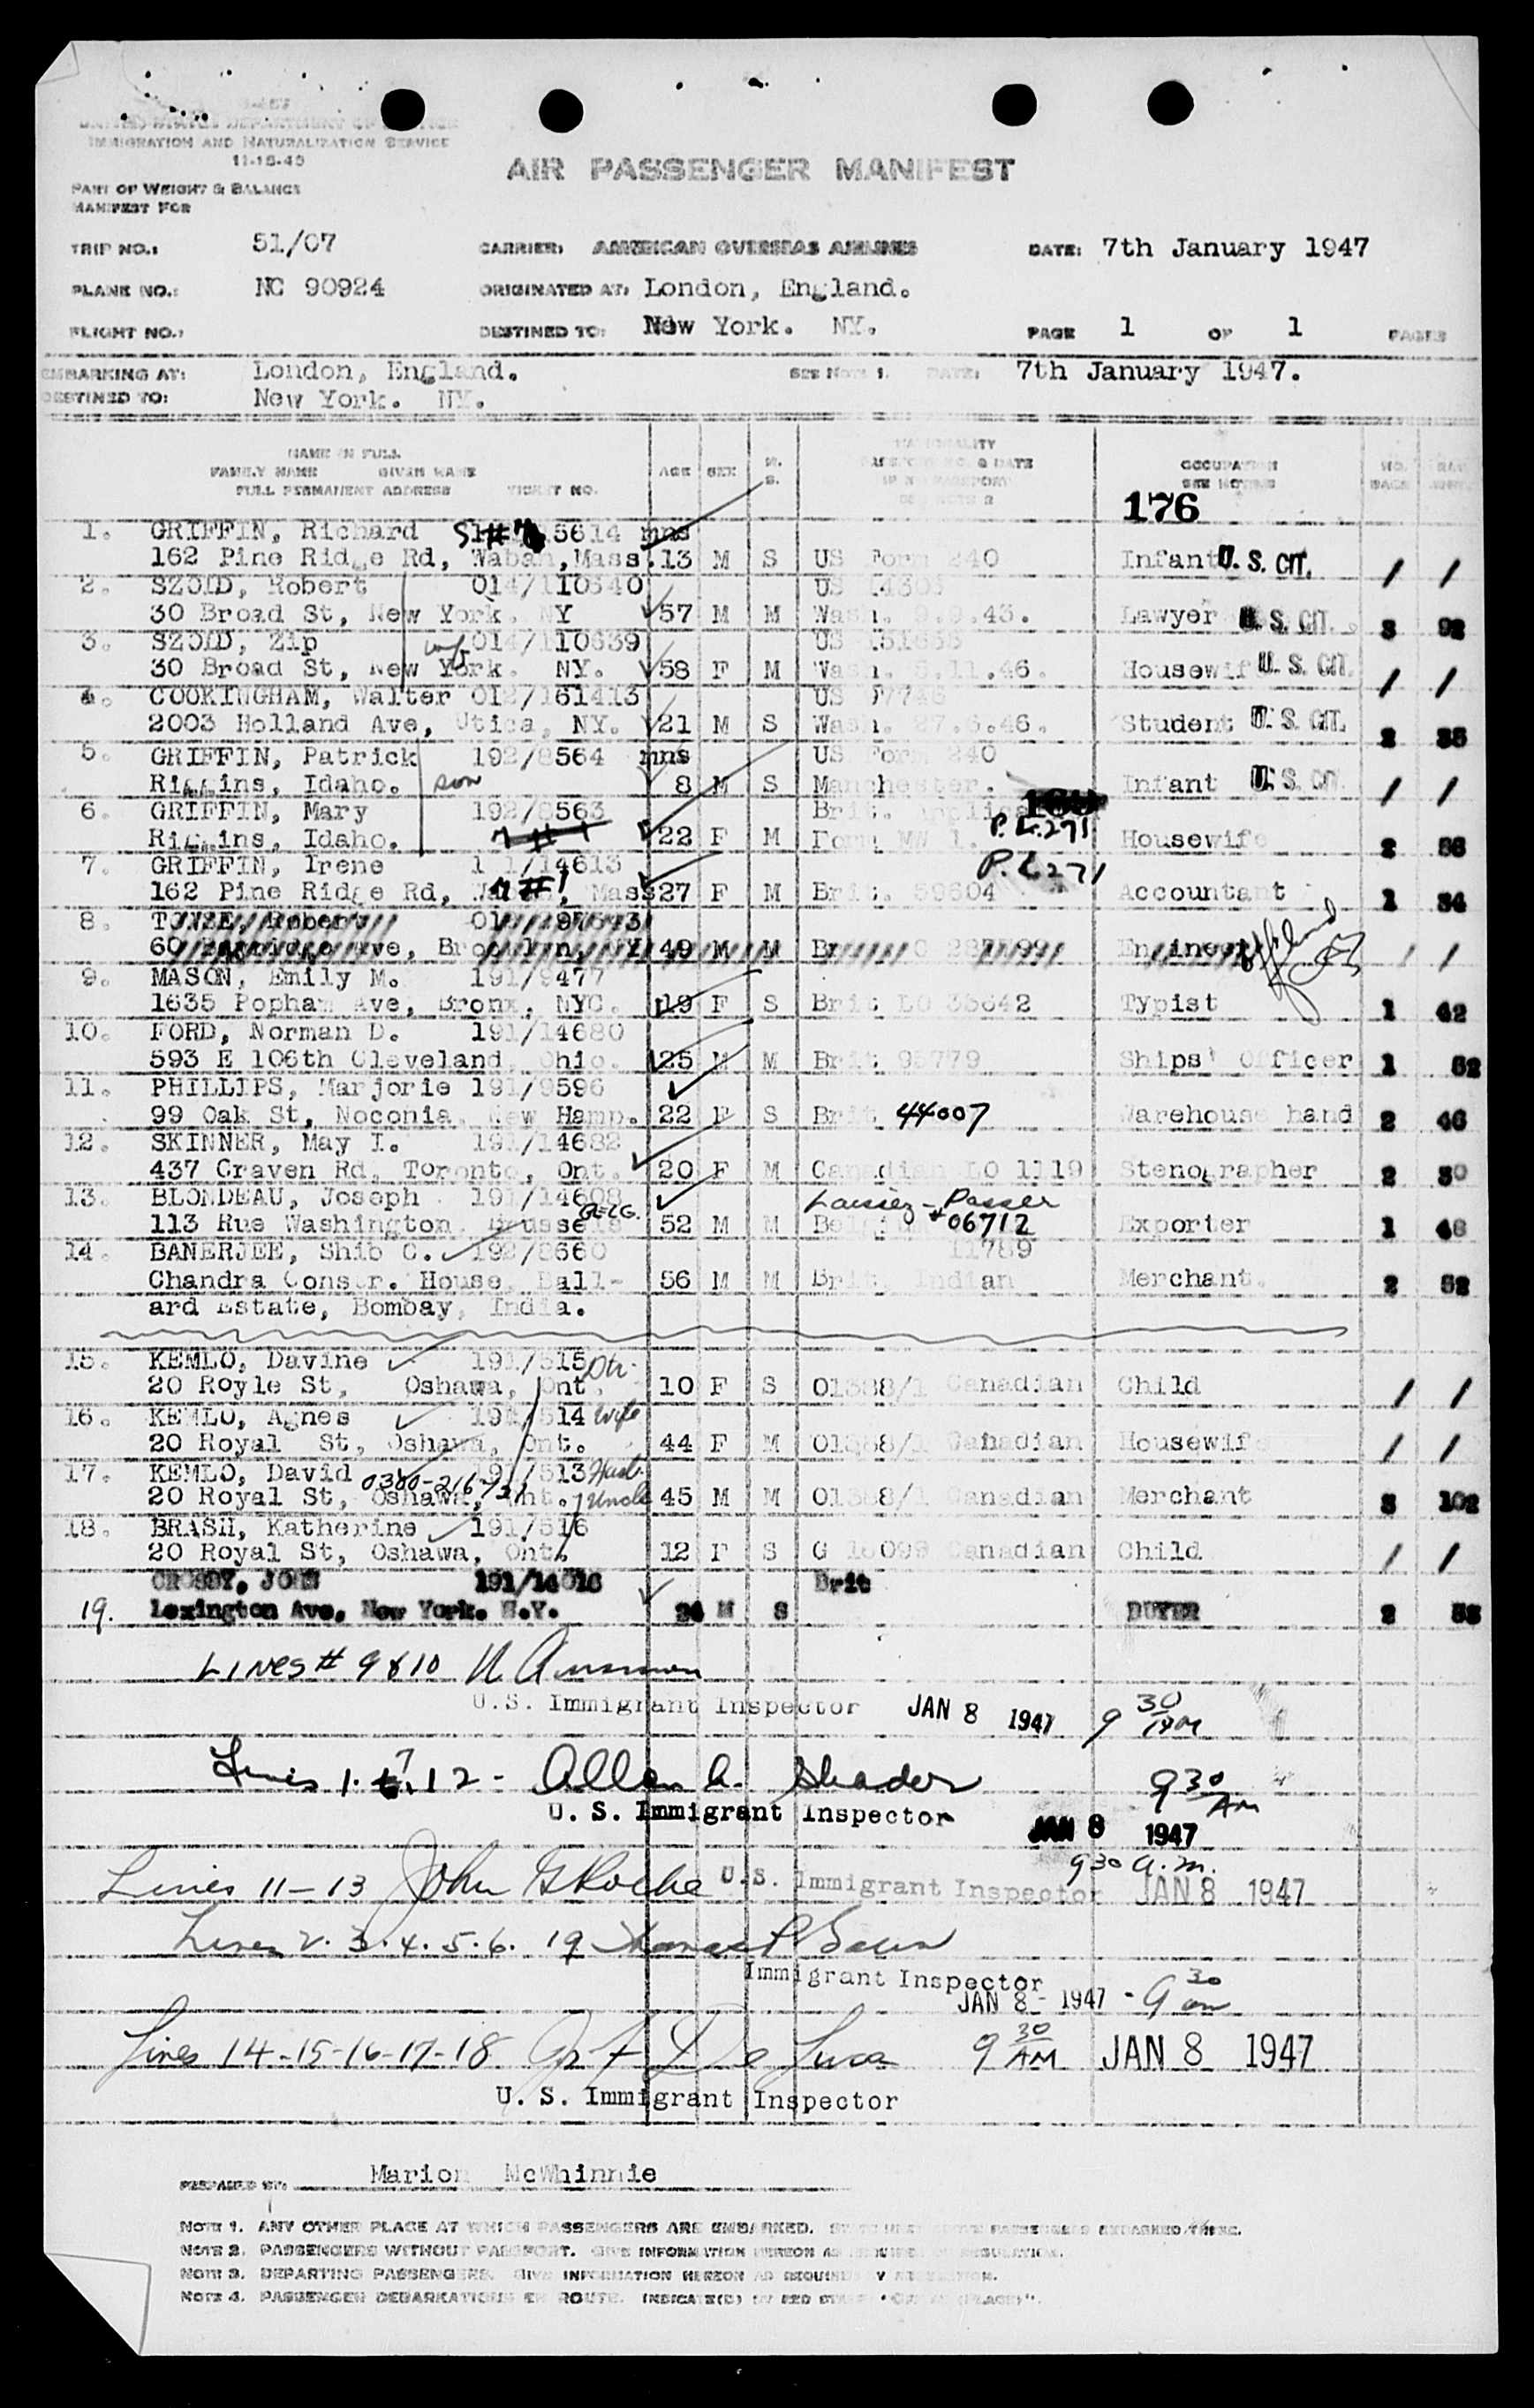 IMMIGRATION AND NATURALIZATION SERVICE
11-15-45
AIR PASSENGER MANIFEST
PART OF WEIGHT & BALANCE
MANIFEST FOR
TRIP NO.: 51/07 CARRIER: AMERICAN OVERSEAS AIRLINES DATE: 7th January 1947
PLANE NO.: NC 90924 ORIGINATED AT: London, England.
FLIGHT NO.: DESTINED TO: New York. NY. PAGE 1 OF 1 PAGES
EMBARKING AT: London, England. SEE NOTE 1. DATE: 7th January 1947.
DESTINED TO: New York. NY.
NAME IN FULL
FAMILY NAME GIVEN NAME AGE SEX M. S. OCCUPATION
FULL PERMANENT ADDRESS TICKET NO. SEE NOTE
176
1. GRIFFIN, Richard 5614 mns
162 Pine Ridge Rd, Waban, Mass. 13 M S US Form 240 Infant U. S. CIT. / /
2. SZOLD, Robert 014/110640
30 Broad St, New York. NY 57 M M Wash. Lawyer U. S. CIT. 3 92
3. SZOLD, Zip wf 014/110639
30 Broad St, New York. NY. 58 F M Wash. .11.46. Housewife U. S. CIT. / /
4. COOKINGHAM, Walter 012/161413 US
2003 Holland Ave, Utica, NY. 21 M S Wash. 27.6.46. Student U. S. CIT. 2 35
5. GRIFFIN, Patrick 192/8564 mns US Form 240
Riggins, Idaho. son 8 M S Manchester. Infant U. S. CIT. / /
6. GRIFFIN, Mary 192/8563 Brit.
Riggins, Idaho. 22 F M Form P.L.271 Housewife 2 36
7. GRIFFIN, Irene 14613 P.L271
162 Pine Ridge Rd, Mass 27 F M Brit. 59604 Accountant 1 34
8. Robert
Ave, Brooklyn, NY 49 M M Engineer / /
9. MASON, Emily M. 191/9477
1635 Popham Ave, Bronx, NYC. 19 F S Brit Typist 1 42
10. FORD, Norman D. 191/14680
593 E 106th Cleveland, Ohio. 25 M M Brit 95779 Ships' Officer 1 52
11. PHILLIPS, Marjorie 191/9596
99 Oak St, Noconia, New Hamp. 22 F S Brit 44007 Warehouse hand 2 46
12. SKINNER, May I. 191/14682
437 Craven Rd, Toronto, Ont. 20 F M Canadian LO 1119 Stenographer 2 30
13. BLONDEAU, Joseph 191/14608 Laissez-Passer
113 Rue Washington. Brussels BELG. 52 M M 06712 Exporter 1 48
14. BANERJEE, Shib C. 192/8660 11789
Chandra Constr. House, Ball- 56 M M Brit. Indian Merchant. 2 52
ard Estate, Bombay, India.
15. KEMLO, Davine 191/515 Dtr.
20 Royle St, Oshawa, Ont. 10 F S 01388/1 Canadian Child / /
16. KEMLO, Agnes 191/514 Wife
20 Royal St, Oshawa, Ont. 44 F M 01388/1 Canadian Housewife / /
17. KEMLO, David 191/513 Husb.
20 Royal St, Oshawa, Ont. Uncle 45 M M 01388/1 Canadian Merchant 3 102
18. BRASH, Katherine 191/516
20 Royal St, Oshawa, Ont. 12 F S Canadian Child / /
CROSBY, JOHN 191/14616 Brit
19. Lexington Ave, New York. N.Y. M S BUYER 2
LINES # 9 & 10
U.S. Immigrant Inspector JAN 8 1947 9 30 AM
Lines 1. 7. 12 - Allen A. Shader 9 30 AM
U. S. Immigrant Inspector
JAN 8 1947
9 30 a.m.
Lines 11-13 John G Roche U.S. Immigrant Inspector JAN 8 1947
Lines 2. 3. 4. 5. 6. 19
Immigrant Inspector
JAN 8 - 1947 - 9 30 am
Lines 14-15-16-17-18 De Luca 9 30 AM JAN 8 1947
U. S. Immigrant Inspector
PREPARED BY: Marion McWhinnie
NOTE 1. ANY OTHER PLACE AT WHICH PASSENGERS ARE EMBARKED.
NOTE 2. PASSENGERS WITHOUT PASSPORT. GIVE INFORMATION HEREON AS REQUIRED BY REGULATION.
NOTE 3. DEPARTING PASSENGERS. GIVE INFORMATION HEREON AS REQUIRED
NOTE 4. PASSENGER DEBARKATIONS EN ROUTE. INDICATE(D) BY RED